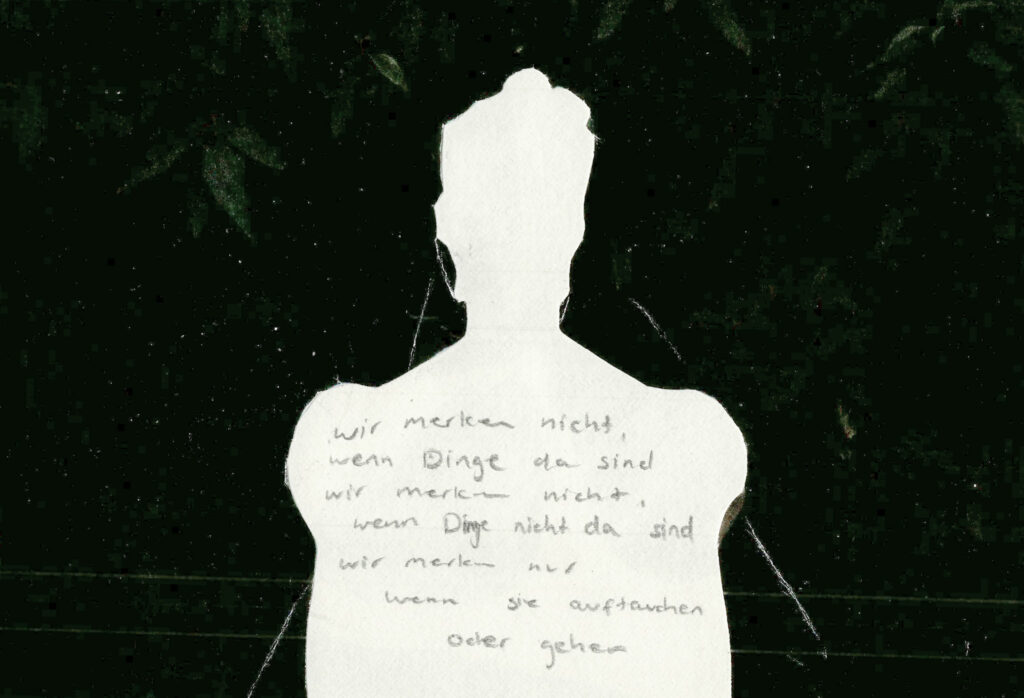 wir merken nicht,
wenn Dinge da sind
wir merken nicht,
wenn Dinge nicht da sind
wir merken nur
wenn sie auftauchen
oder gehen